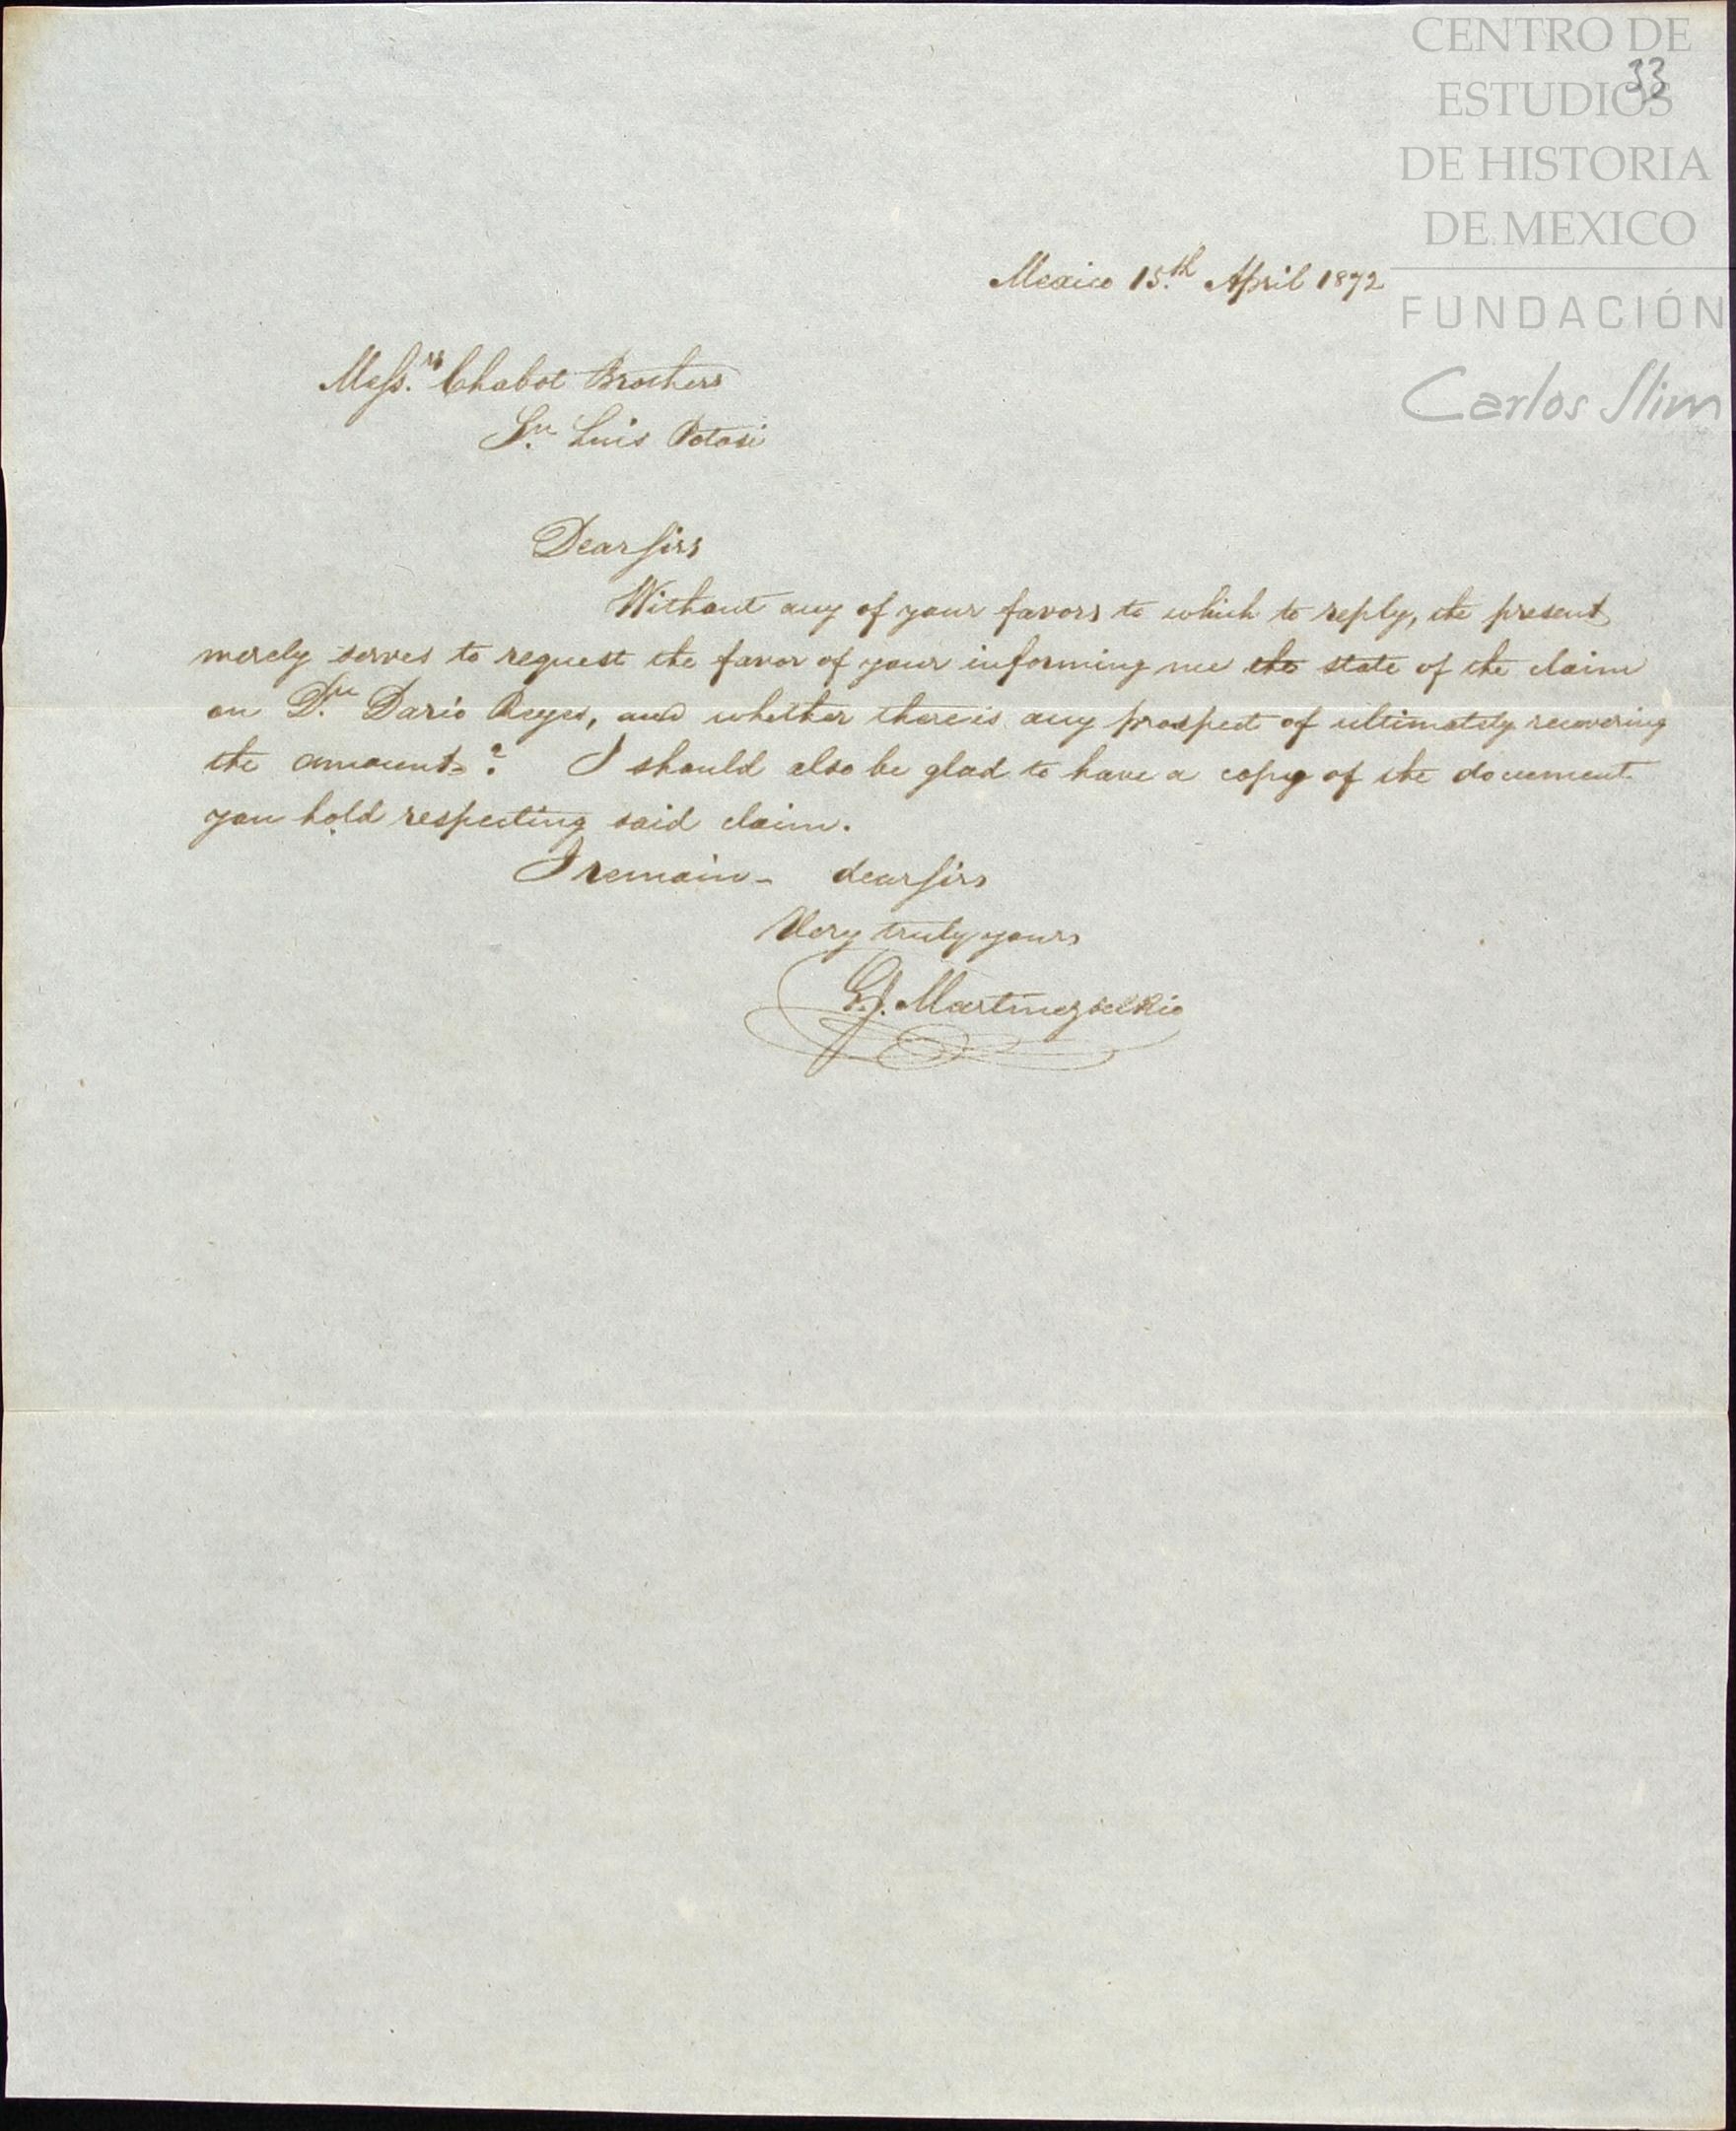 CENTRO DE
ESTUDIOS
33
DE HISTORIA
DE MEXICO
FUNDACIÓN
Carlos Slim
Mexico 15.th April 1872
Mess.rs Chabot Brothers
Sn. Luis Potosi
Dear Sirs
Without any of your favors to which to reply, the present
merely serves to request the favor of your informing me the state of the claim
on Dn. Dario Reyes, and whether there is any prospect of ultimately recovering
the amount-? I should also be glad to have a copy of the document
you hold respecting said claim.
I remain - dear Sirs
Very truly yours
G.J. Martinez del Rio